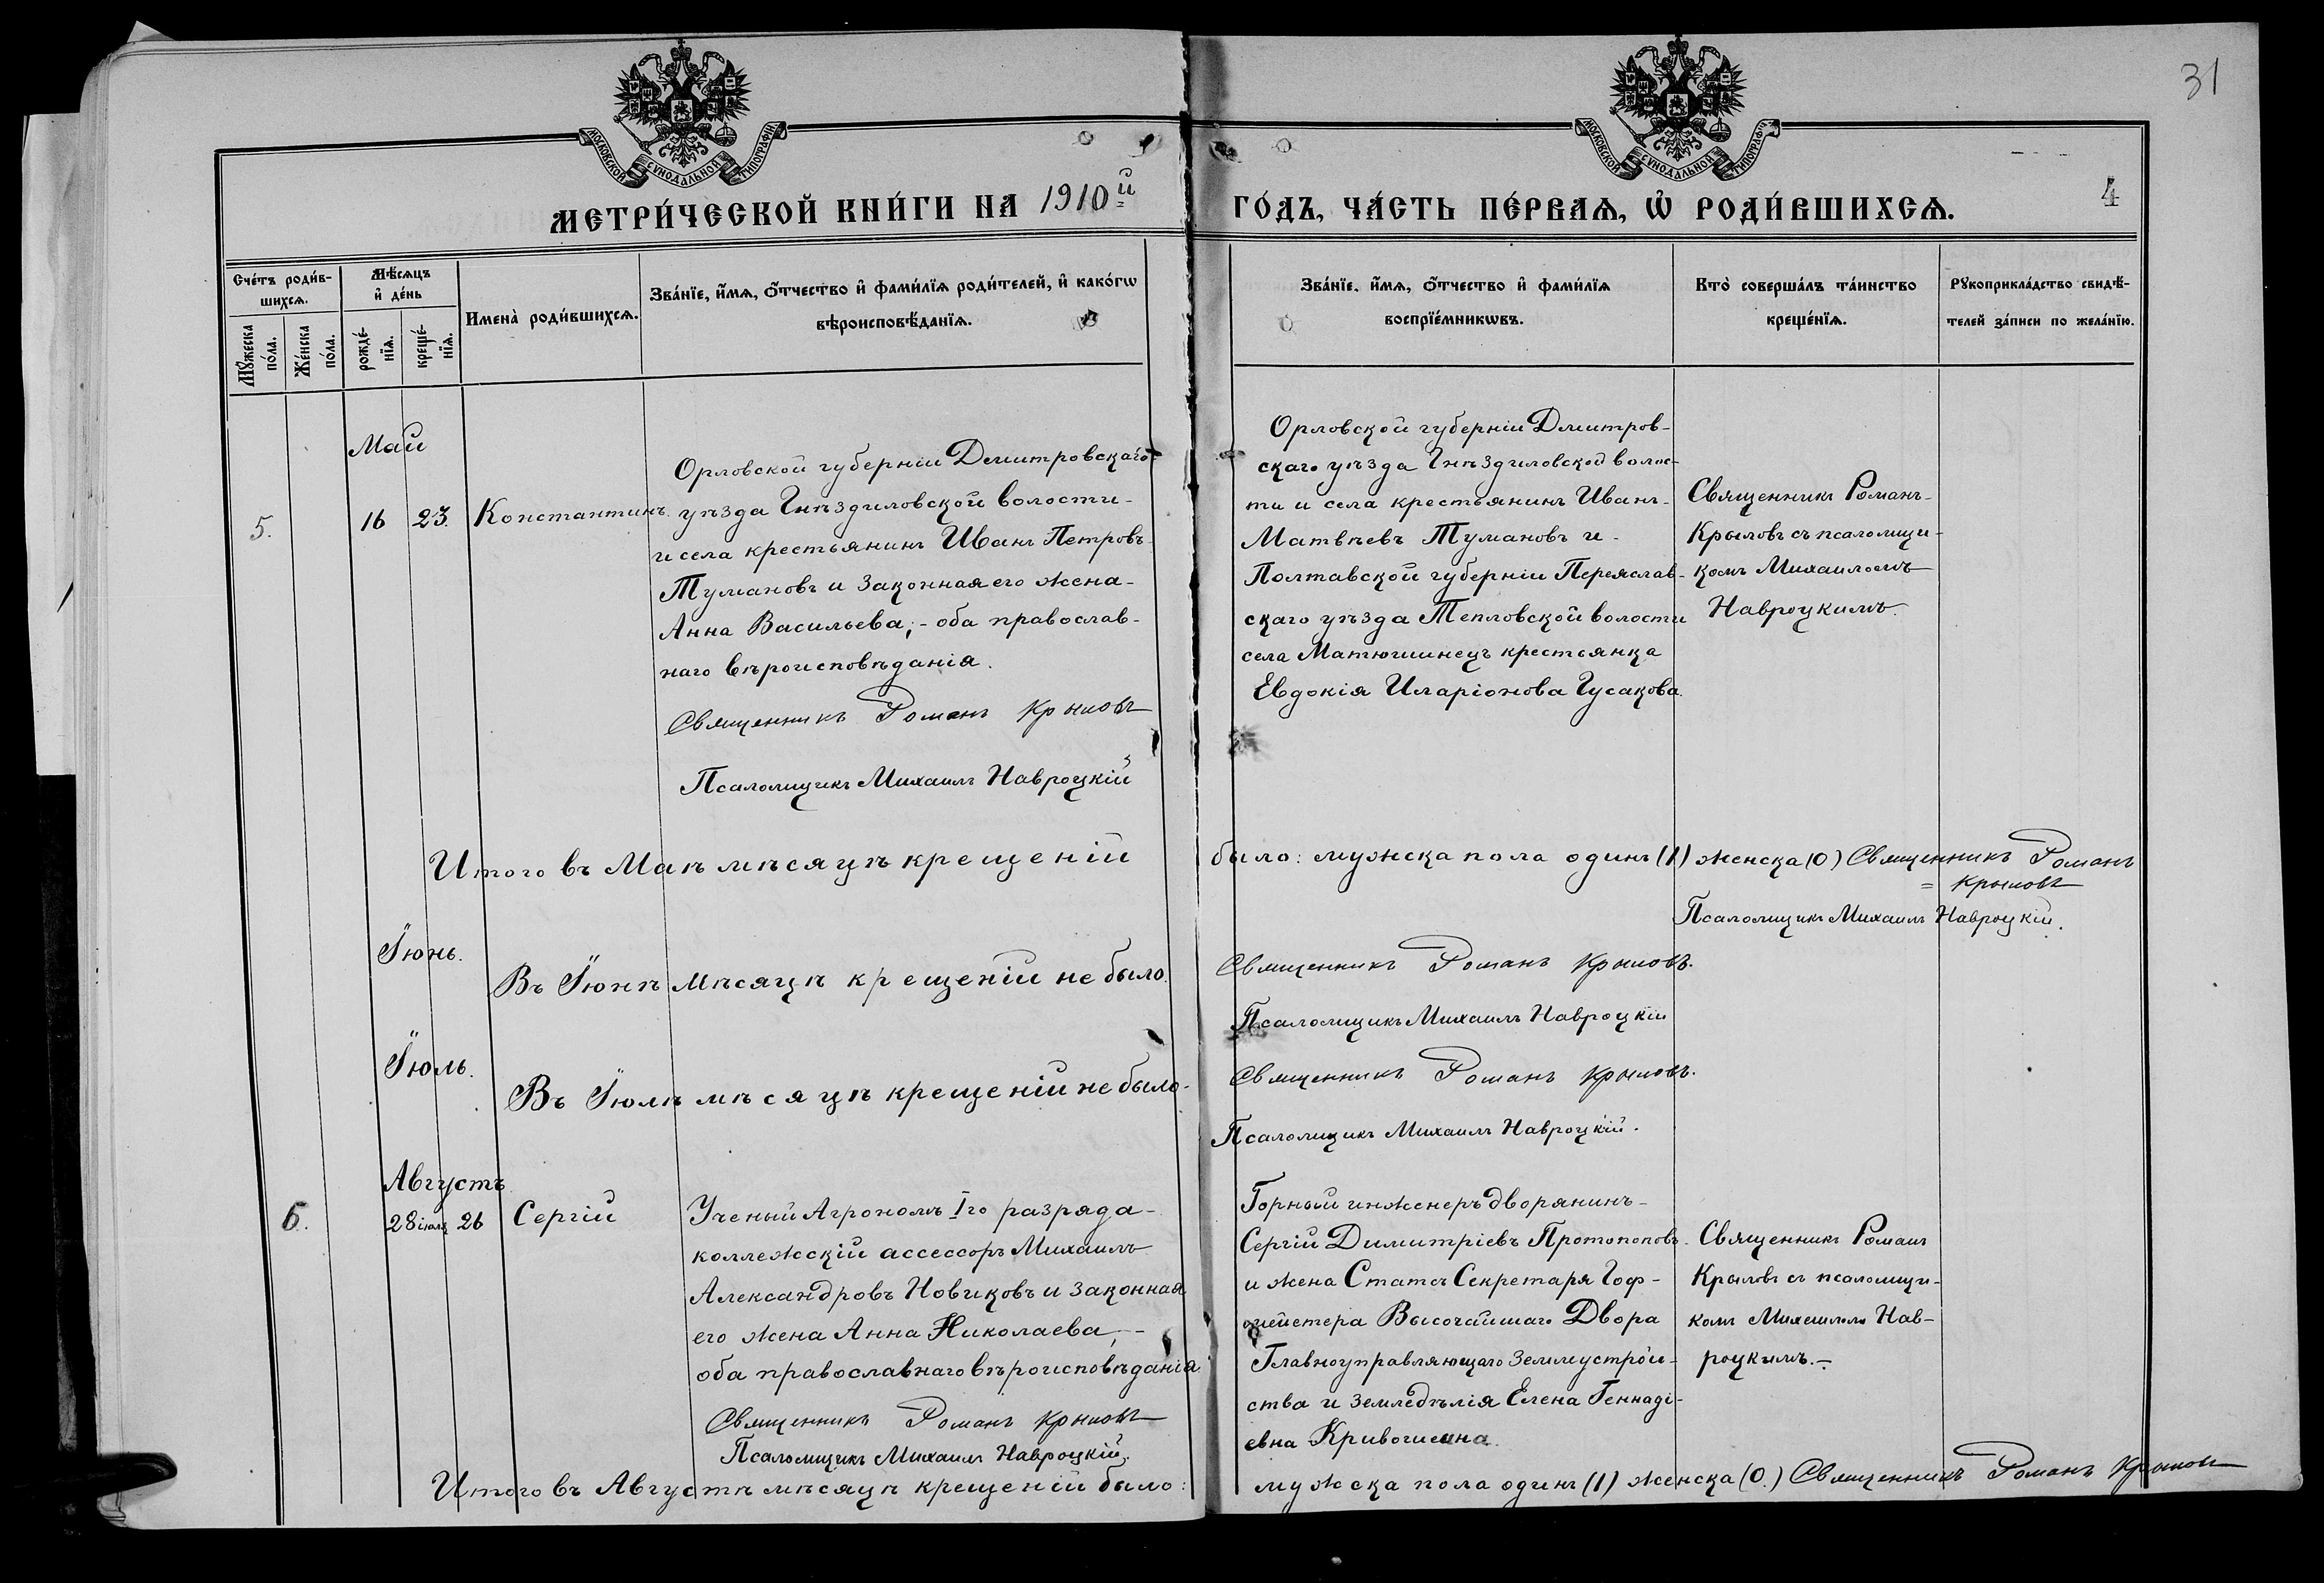 31
МОСКОВСКОЙ СѴНОДАЛЬНОЙ ТИПОГРАФІИ.
МОСКОВСКОЙ СѴНОДАЛЬНОЙ ТИПОГРАФІИ.
МЕТРИ́ЧЕСКОЙ КНИ́ГИ НА 1910й
ГО́ДЪ, ЧА́СТЬ ПЕ́РВАѦ, Ѡ҆ РОДИ́ВШИХСѦ.
4
Сче́тъ роди́в-
шихсѧ.
Мꙋ́жеска
по́ла.
Же́нска
по́ла.
Мѣ́сѧцъ
и҆ де́нь
рожде́-
нїѧ.
креще́-
нїѧ.
Имена̀ роди́вшихсѧ.
Зва́нїе, и҆́мѧ, ѻ҆́тчество и҆ фами́лїѧ роди́телей, и҆ како́гѡ
вѣроисповѣ́данїѧ.
Зва́нїе, и҆́мѧ, ѻ҆́тчество и҆ фами́лїѧ
воспрїе́мникѡвъ.
Кто̀ соверша́лъ та́инство
креще́нїѧ.
Рꙋкоприкла́дство свидѣ́-
телей за́писи по жела́нїю.
Май
5.
16
23.
Константинъ
Орловской губерніи Дмитровскаго
уѣзда Гнѣздиловской волости-
и села крестьянинъ Иванъ Петровъ
Тумановъ и законная его жена-
Анна Васильева;- оба православ-
наго вѣроисповѣданія.
Священникъ Романъ Крыловъ
Псаломщикъ Михаилъ Навроцкій
Орловской губерніи Дмитров-
скаго уѣзда Гнѣздиловской волос-
ти и села крестьянинъ Иванъ-
Матвѣевъ Тумановъ и-
Полтавской губерніи Переяслав-
скаго уѣзда Тепловской волости
села Матюшинецъ крестьянка
Евдокія Иларіонова Гусакова.
Священникъ Романъ-
Крыловъ съ псаломщи-
комъ Михаиломъ
Навроцкимъ.
Итого въ Маѣ мѣсяцѣ крещеній было: мужска пола одинъ (1) женска (0) Священникъ Романъ
= Крыловъ
Псаломщикъ Михаилъ Навроцкій.
Іюнь.
Въ Іюнѣ мѣсяцѣ крещеній не было.
Священникъ Романъ Крыловъ.
Псаломщикъ Михаилъ Навроцкій
Іюль.
Въ Іюлѣ мѣсяцѣ крещеній не было-
Священникъ Романъ Крыловъ.
Псаломщикъ Михаилъ Навроцкій.
Августъ
6.
28 іюля
26
Сергій
Ученый Агрономъ Iго разряда-
коллежскій ассессоръ Михаилъ
Александровъ Новиковъ и законная
его жена Анна Николаева;-
оба православнаго вѣроисповѣданія
Священникъ Романъ Крыловъ
Псаломщикъ Михаилъ Навроцкій.
Горный инженеръ дворянинъ-
Сергій Димитріевъ Протопоповъ
и жена Статсъ Секретаря Гоф-
мейстера Высочайшаго Двора
Главноуправляющаго землеустрой-
ства и земледѣлія Елена Геннаді-
евна Кривошеина.
Священникъ Романъ
Крыловъ съ псаломщи-
комъ Михаиломъ Нав-
роцкимъ.-
Итого въ Августѣ мѣсяцѣ крещеній было: мужска пола одинъ (1) женска (0.) Священникъ Романъ Крыловъ